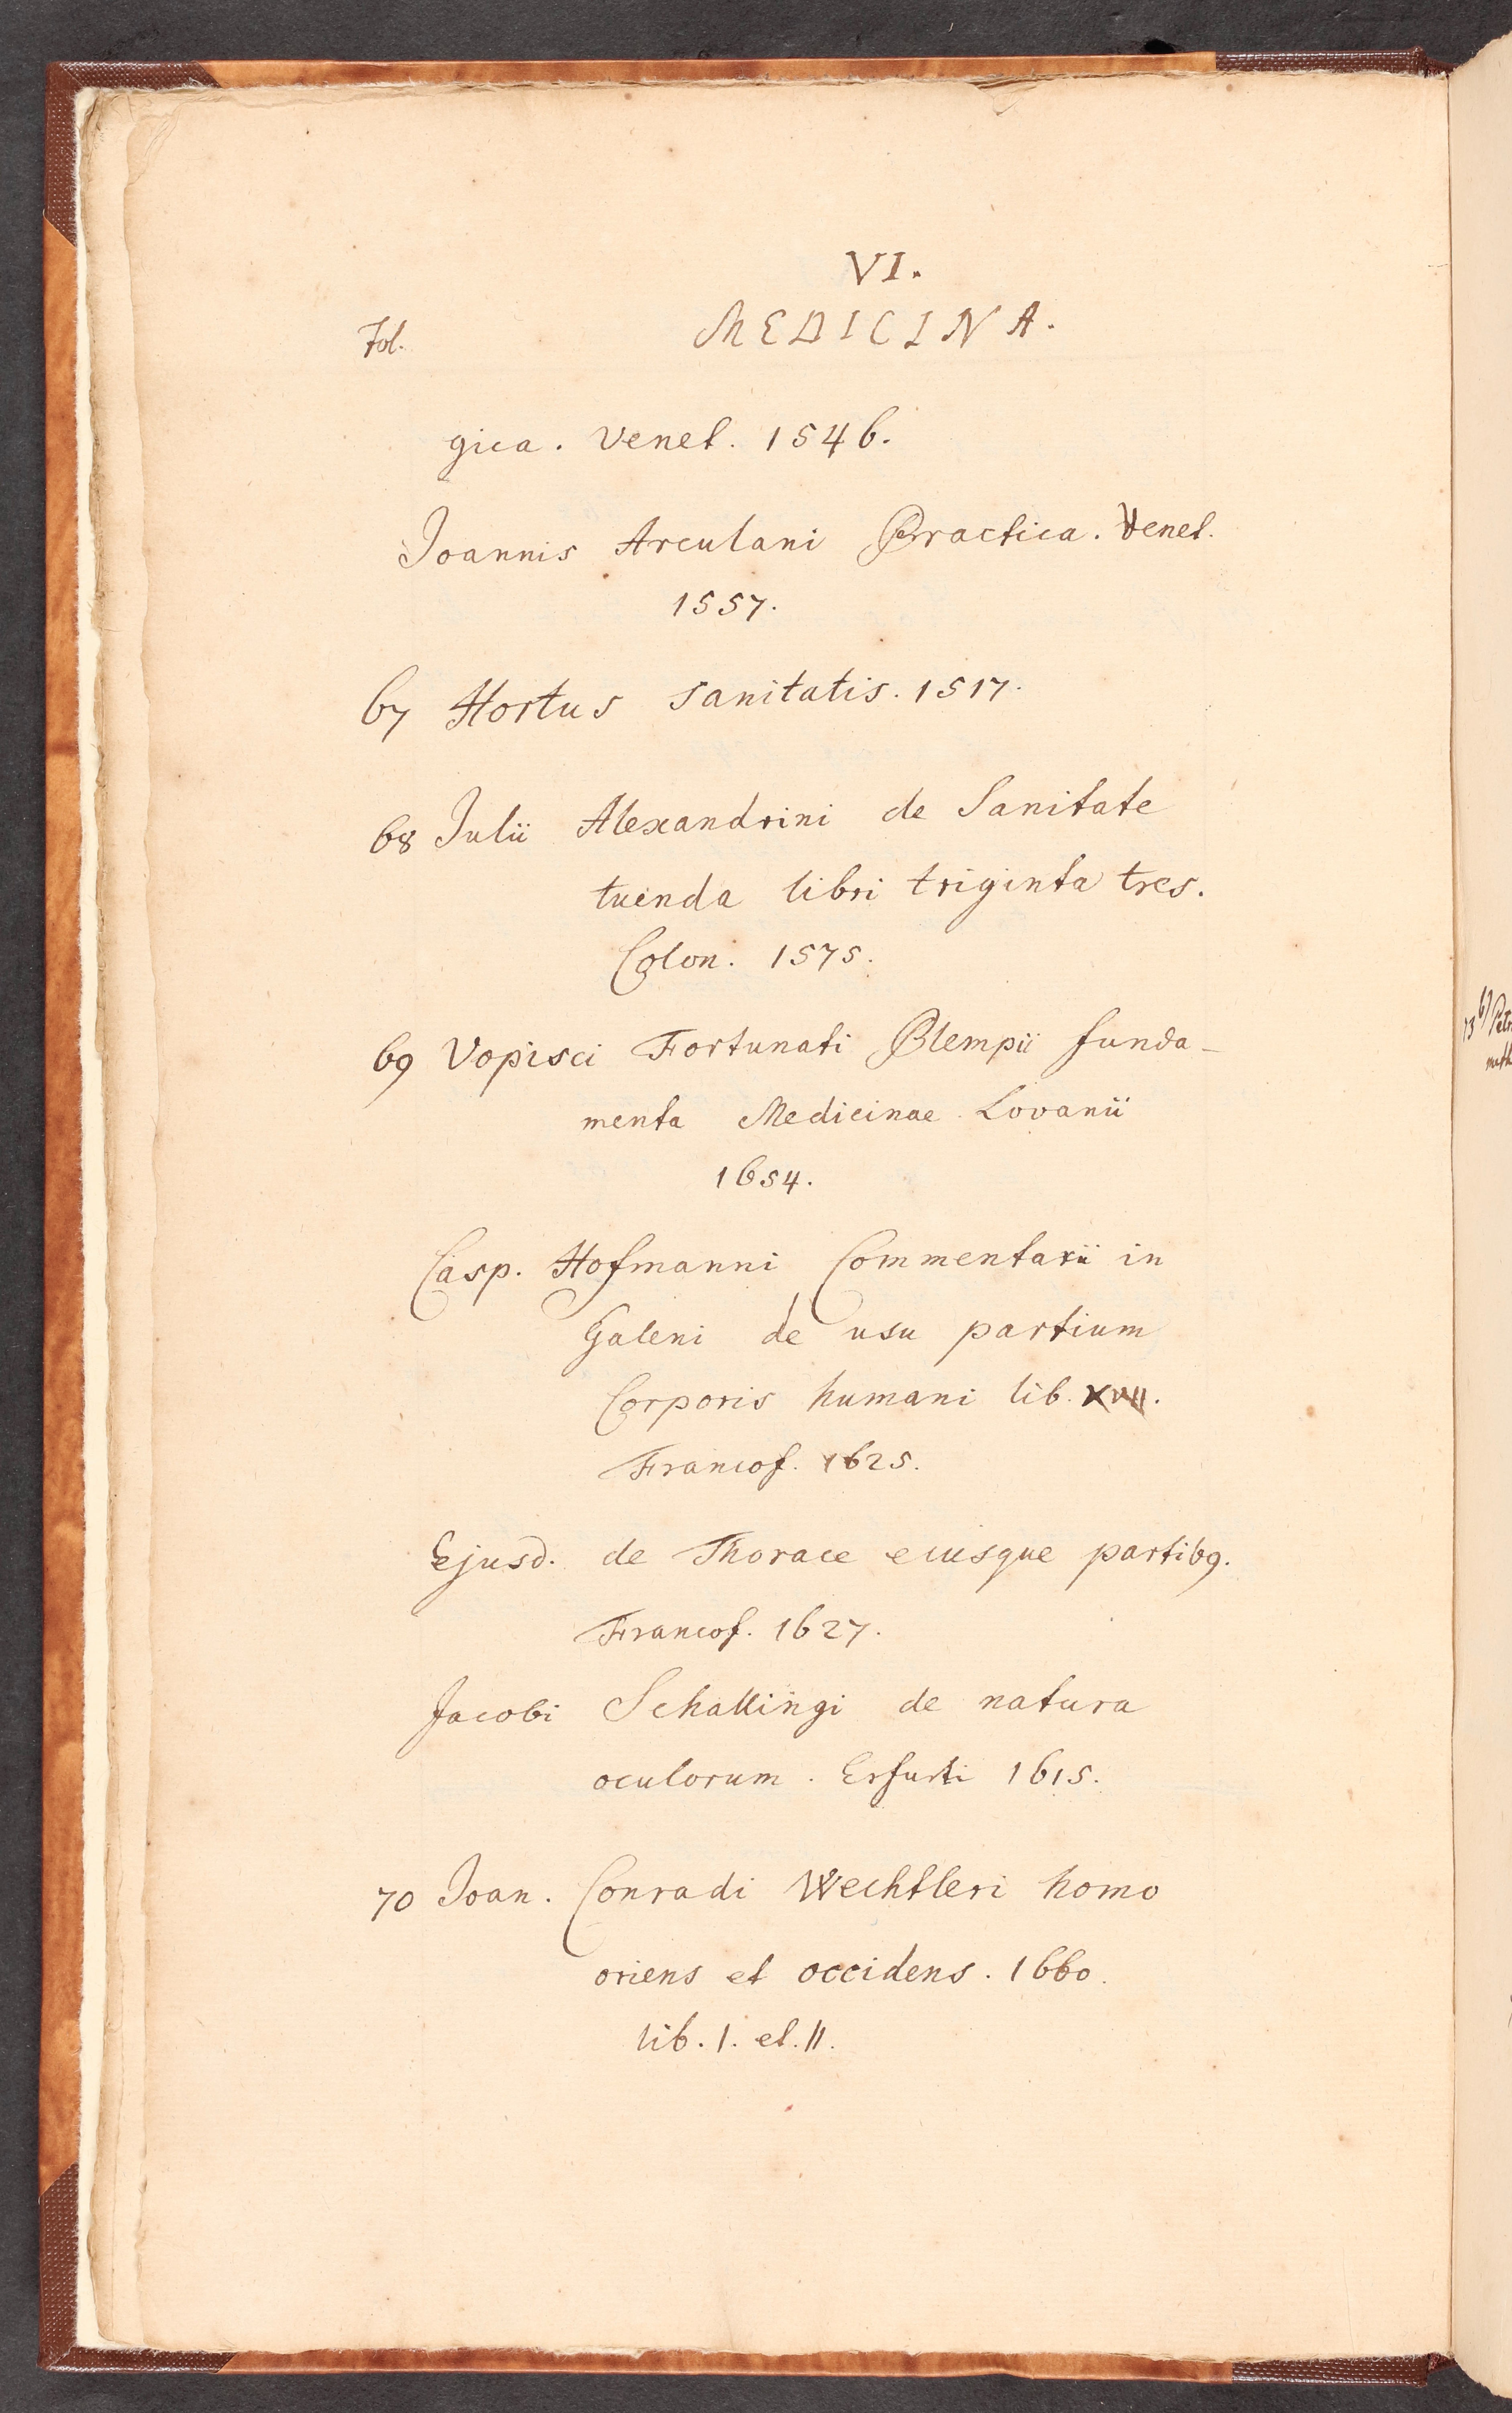 VI.
Fol. MEDICINA.
gica. Venet. 1546.
Joannis Arculani Practica. Venet.
1557.
67 Hortus sanitatis. 1517.
68 Julii Alexandrini de Sanitate
tuenda libri triginta tres.
Colon. 1575.
69 Vopisci Fortunati Plempii funda-
menta Medicinae Lovanii
1654.
Casp. Hofmanni Commentarii in
Galeni de usu partium
Corporis humani lib. XVII.
Francof. 1625.
Ejusd. de Thorace eiusque partibꝯ.
Francof. 1627.
Jacobi Schallingi de natura
oculorum. Erfurti 1615.
70 Joan. Conradi Wechtleri homo
oriens et occidens. 1660.
lib. I. et. II.